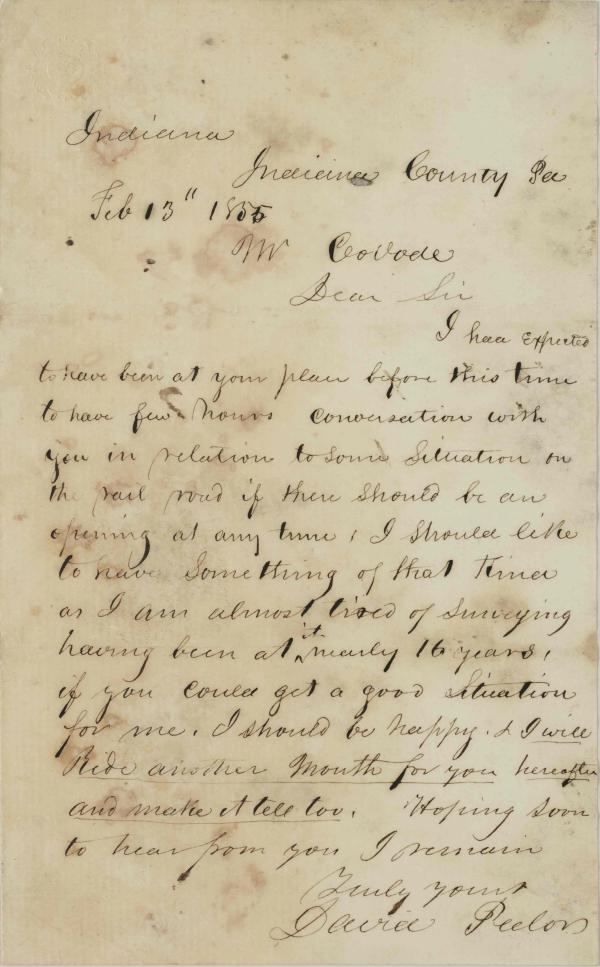 Indiana
Indiana County Pa
Feb 13" 1855
Mr Covode
Dear Sir
I had expected
to have been at your place before this time
to have few hours conversation with
you in relation to some Situation on
the rail road if there should be an
opening at any time, I should like
to have Something of that Kind
as I am almost tired of Surveying
having been at it nearly 16 years,
if you could get a good Situation
for me. I should be happy. & I will
Ride another Month for you hereafter
and make it tell too. Hoping soon
to hear from you I remain
Truly yours
David Peelor